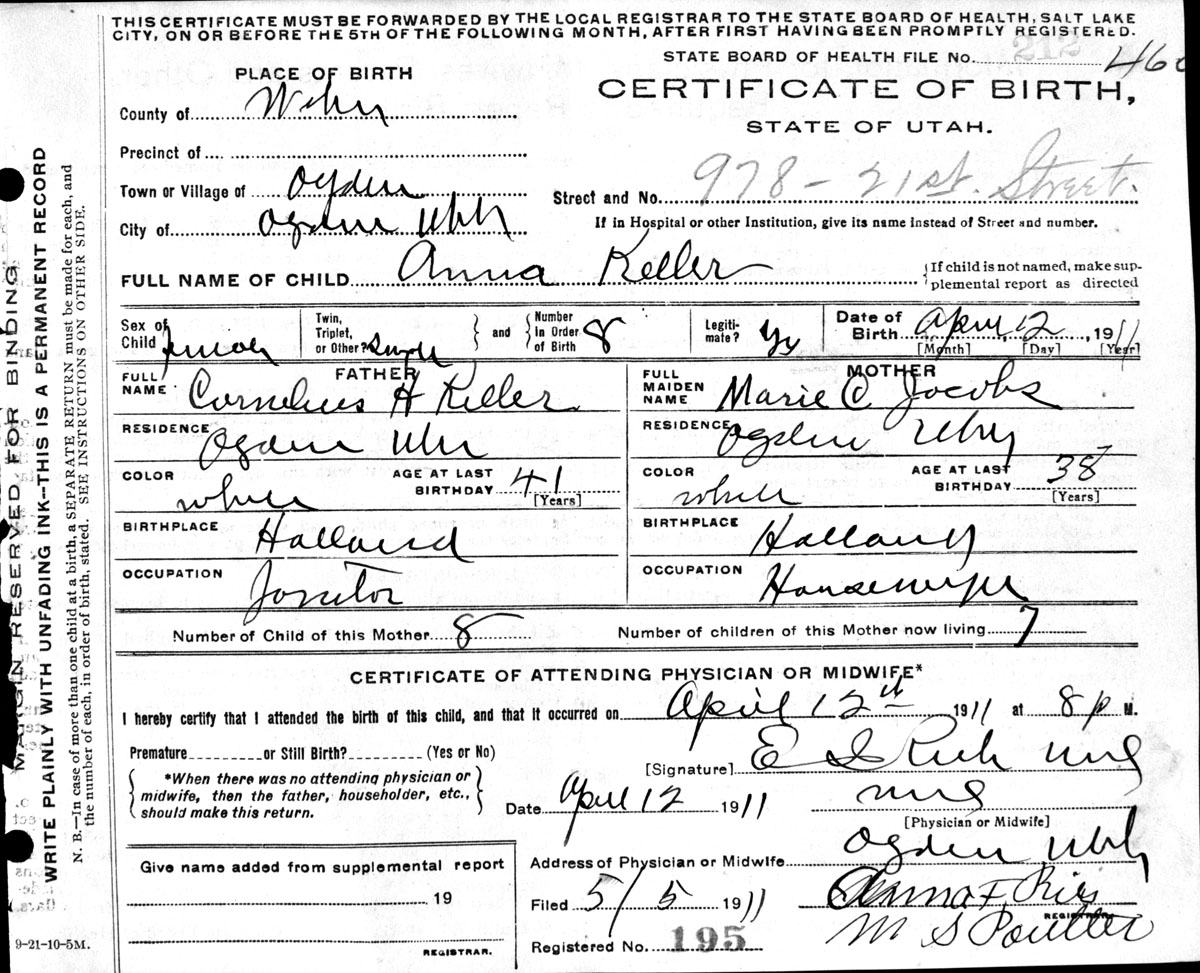 THIS CERTIFICATE MUST BE FORWARDED BY THE LOCAL REGISTRAR TO THE STATE BOARD OF HEALTH, SALT LAKE
CITY, ON OR BEFORE THE 5TH OF THE FOLLOWING MONTH, AFTER FIRST HAVING BEEN PROMPTLY REGISTERED.
STATE BOARD OF HEALTH FILE No. 212 460
PLACE OF BIRTH
CERTIFICATE OF BIRTH,
County of Weber
STATE OF UTAH.
Precinct of
Town or Village of Ogden
Street and No. 978 - 21st. Street.
City of Ogden Utah
If in Hospital or other Institution, give its name instead of Street and number.
FULL NAME OF CHILD Anna Keller
{If child is not named, make sup-
plemental report as directed
Sex of Child female
Twin, Triplet, or Other? Single
and
Number In Order of Birth 8
Legiti-mate? Yes
Date of Birth April, 12, 1911
[Month] [Day] [Year]
FATHER
FULL NAME Cornelius H Keller
RESIDENCE Ogden Utah
COLOR white
AGE AT LAST BIRTHDAY 41
[Years]
BIRTHPLACE Holland
OCCUPATION Janitor
MOTHER
FULL MAIDEN NAME Marie C Jacobs
RESIDENCE Ogden Utah
COLOR white
AGE AT LAST BIRTHDAY 38
[Years]
BIRTHPLACE Holland
OCCUPATION Housewife
Number of Child of this Mother 8 Number of children of this Mother now living 7
CERTIFICATE OF ATTENDING PHYSICIAN OR MIDWIFE*
I hereby certify that I attended the birth of this child, and that it occurred on April 12th 1911 at 8 p M.
Premature or Still Birth? (Yes or No)
[Signature] E I Rich MD
*When there was no attending physician or
midwife, then the father, householder, etc.,
should make this return.
Date April 12 1911
MD
[Physician or Midwife]
Address of Physician or Midwife Ogden Utah
Give name added from supplemental report
19
REGISTRAR.
Filed 5/5 1911
Anna F
REGISTRAR.
Registered No. 195
M S Poulter
9-21-10-5M.
MARGIN RESERVED FOR BINDING
WRITE PLAINLY WITH UNFADING INK-THIS IS A PERMANENT RECORD
N. B.—In case of more than one child at a birth, a SEPARATE RETURN must be made for each, and
the number of each, in order of birth, stated. SEE INSTRUCTIONS ON OTHER SIDE.